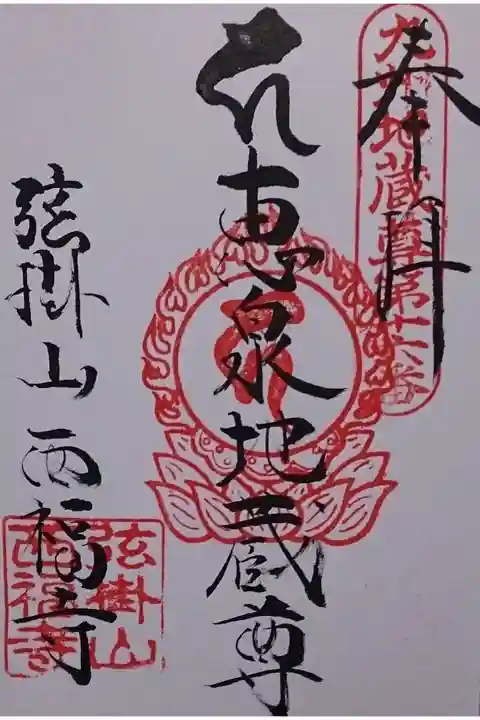 奉拝
九州地蔵尊第十六番
恵泉地蔵尊
弦掛山 西福寺
弦掛山
西福寺